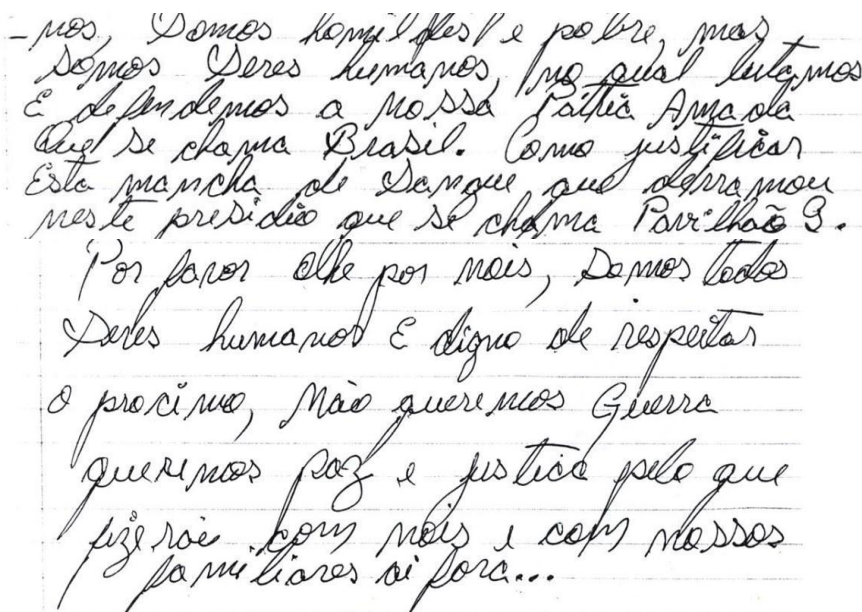 -nos, Somos homildes e pobre, mas
somos Seres humanos, no qual lutamos
E defendemos a nossa Pátria Amada
Que se chama Brasil. Como justificar
Esta mancha de Sangue que derramou
neste presidio que se chama Pavilhão 9.
Por favor olhe por nois, Somos todos
Seres humanos E digno de respeitar
o procimo, Não queremos Guerra
queremos paz e justiça pelo que
fizerão com nois e com nossos
familiares ai fora...